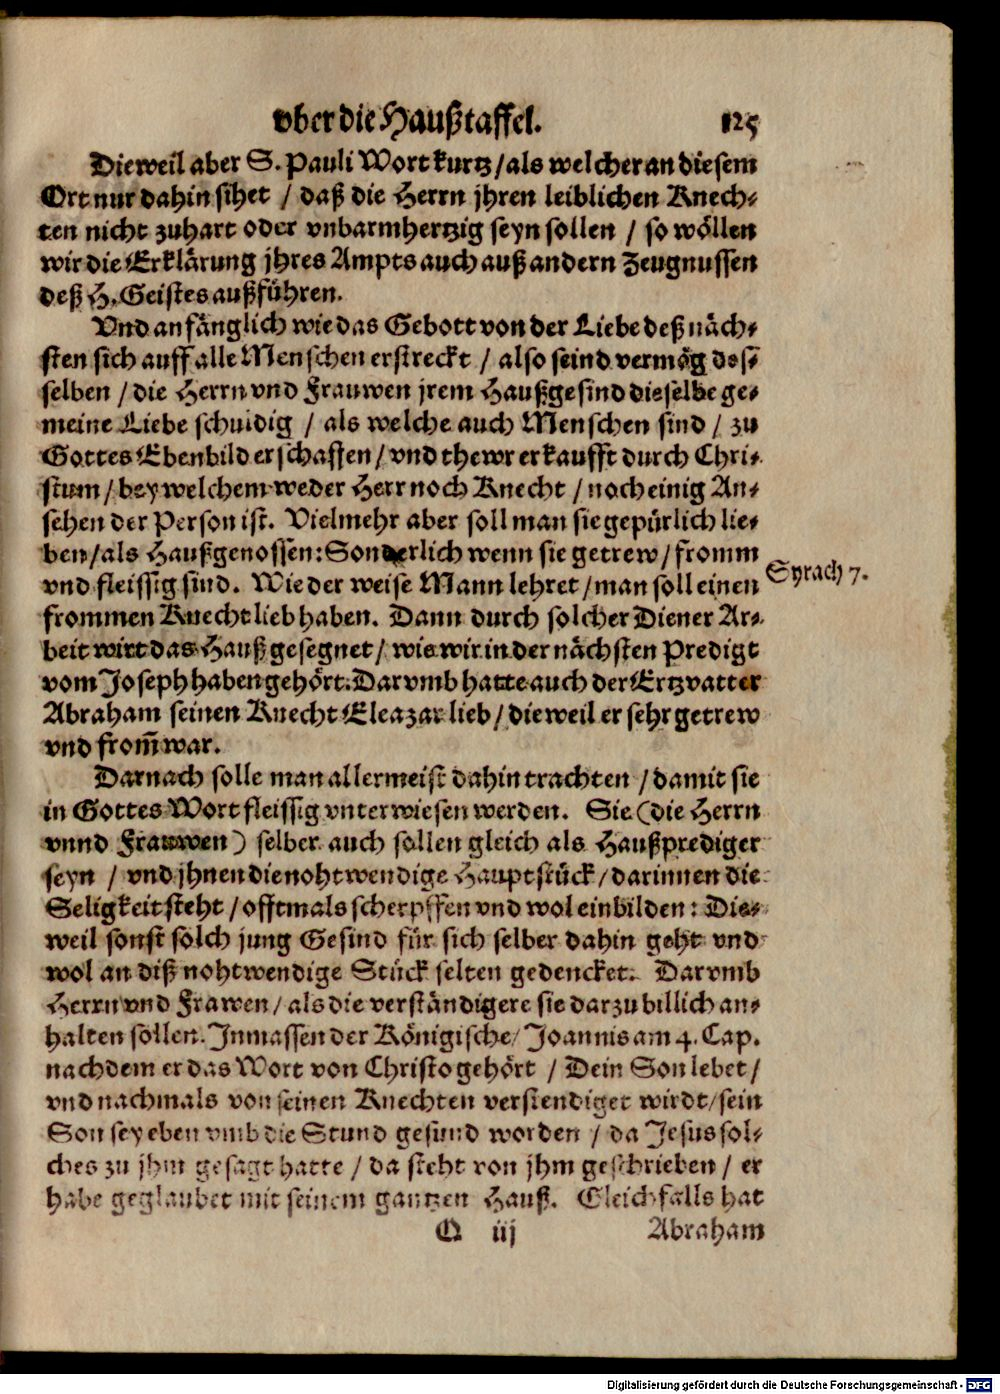 vber die Haußtaffel. 125
Dieweil aber S. Pauli Wort kurtz / als welcher an diesem
Ort nur dahin sihet / daß die Herrn jhren leiblichen Knech-
ten nicht zuhart oder vnbarmhertzig seyn sollen / so wöllen
wir die Erklärung jhres Ampts auch auß andern Zeugnussen
deß H. Geistes außführen.
Vnd anfänglich wie das Gebott von der Liebe deß näch-
sten sich auff alle Menschen erstreckt / also seind vermög desẽ
selben / die Herrn vnd Frauwen jrem Haußgesind dieselbe ge-
meine Liebe schuldig / als welche auch Menschen sind / zu
Gottes Ebenbild erschaffen / vnd thewr erkaufft durch Chri-
stum / bey welchem weder Herr noch Knecht / noch einig An-
sehen der Person ist. Vielmehr aber soll man sie gepürlich lie-
ben / als Haußgenossen: Sonderlich wenn sie getrew / fromm
vnd fleissig sind. Wie der weise Mann lehret / man soll einen
Syrach 7.
frommen Knecht lieb haben. Dann durch solcher Diener Ar-
beit wirt das Hauß gesegnet / wie wir in der nächsten Predigt
vom Joseph haben gehört. Darvmb hatte auch der Ertzvatter
Abraham seinen Knecht Eleazar lieb / dieweil er sehr getrew
vnd from̃ war.
Darnach solle man allermeist dahin trachten / damit sie
in Gottes Wort fleissig vnterwiesen werden. Sie (die Herrn
vnnd Frauwen) selber auch sollen gleich als Haußprediger
seyn / vnd jhnen die nohtwendige Hauptstück / darinnen die
Seligkeit steht / offtmals scherpffen vnd wol einbilden: Die-
weil sonst solch jung Gesind für sich selber dahin geht vnd
wol an diß nohtwendige Stück selten gedencket. Darvmb
Herrn vnd Frawen / als die verständigere sie darzu billich an-
halten sollen. Inmassen der Königische / Joannis am 4. Cap.
nachdem er das Wort von Christo gehört / Dein Son lebet /
vnd nachmals von seinen Knechten verstendiget wirdt / sein
Son sey eben vmb die Stund gesund worden / da Jesus sol-
ches zu jhm gesagt hatte / da steht von jhm geschrieben / er
habe geglaubet mit seinem gantzen Hauß. Gleichfalls hat
Q iij Abraham
Digitalisierung gefördert durch die Deutsche Forschungsgemeinschaft - DFG